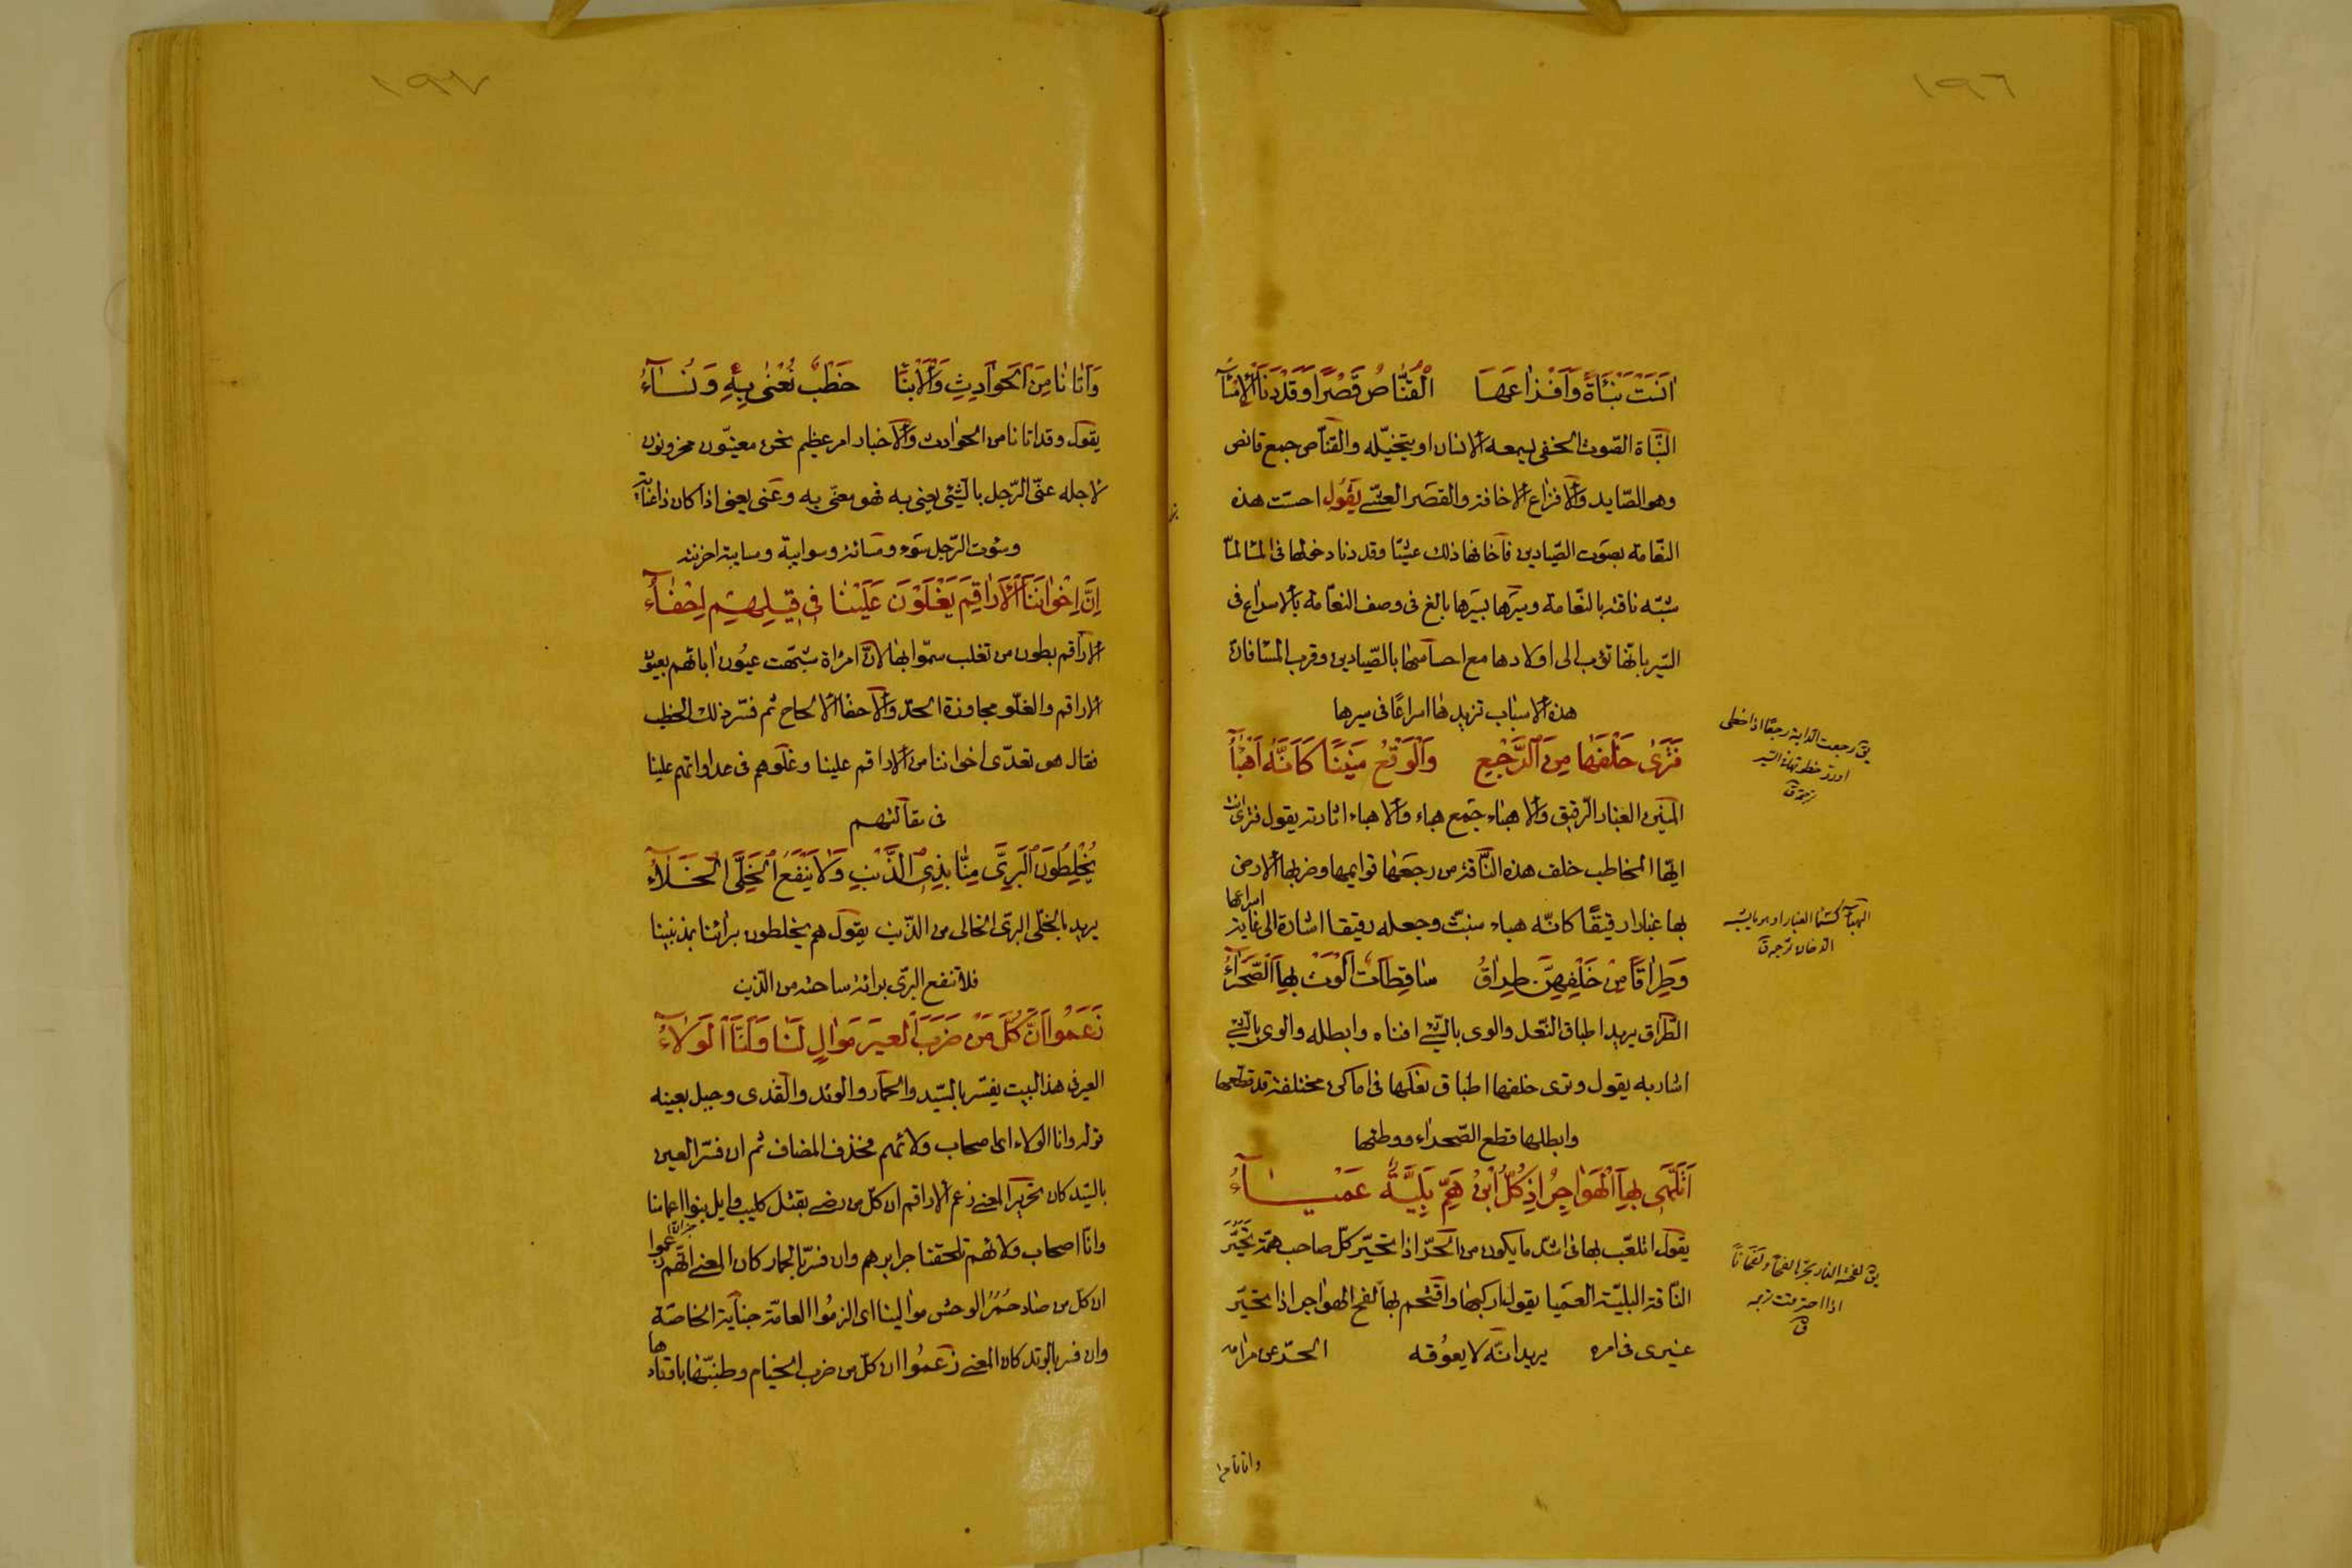 ١٩٦
اٰنَسَتْ نَبْئَاةً وَاَفْزَاعَهَا الْقُنَّاصُ قَصْرًا وَقَدْ دَنَا الْاِمْسَآ
النّباة الصّوت الخفى يسمعه الانسان او يتخيّله والقنّاص جمع قانص
وهو الصّايد والافزاع الاخافة والقصر العشى يَقُول احسّت هذه
النّعامة بصوت الصّيادين فاخافها ذلك عشيّا وقد دنا دخولها فى المسا لمّا
شبّه ناقته بالنّعامة وسيرها بسيرها بالغ فى وصف النعامة بالاسراع فى
السّير بانّها تؤب الى اولادها مع احساسها بالصّيادين وقرب المسا فان
هذه الاسباب تزيدها اسراعًا فى سيرها
فَتَرىٰ خَلْفَهَا مِنَ الرَّجْعِ وَالْوَقْعِ مَنِينًا كَاَنَّهُ اَهْبَآءُ
المنين الغبار الرّقيق والاهباء جمع هباء والاهباء اثارته يقول فترى انت
ايّها المخاطب خلف هذه النّاقة من رجعها قوايمها وضربها الارض
بها غبارا رقيقًا كانّه هباء منبثّ وجعله رقيقا اشارة الى غاية اسراعها
وَطِرَاقًا مِنْ خَلْفِهِنَّ طِرَاقٌ سَاقِطَاتٌ اَلْوَتْ بِهَا الصَّحْرَاءُ
الطّراق يريد اطباق النّعل والوى بالشّئ افناه وابطله والوى بالشّئ
اشار به يقول وترى خلفها اطباق نعلها فى اماكن مختلفة قد قطعها
وابطلها قطع الصّحراء ووطئها
اَتَلَهّٰى بِهَا الْهَوَاجِرَ اِذْ كُلُّ ابْنِ هَمٍّ بَلِيَّةٌ عَمْيَآءُ
يقول اتلعّب بها فى اشدّ ما يكون من الحرّ اذا تحيّر كلّ صاحب همّ تحيّر
النّاقة البليّة العميا يقول اركبها واقتحم بها لفح الهواجر اذا تحيّر
غيرى فى امره يريد انّه لا يعوقه الحرّ عن مرامه
يق رجعت الدابة رجعًا اذا خطى
الهبآء كسمآ الغبار او ما يشبه
الدخان ترجمه ق
يق لفحته النار بحرّها لفحًا و لفحانًا
اذا احترقت ترجمه
ق
واتانا من
١٩٧
وَاَتَانَا مِنَ الْحَوَادِثِ وَالْاَنْبَآ خَطْبٌ نُعْنٰى بِهِ وَنُسَآءُ
يقول وقد اتانا من الحوادث والاخبار امر عظيم نحن معنيّون محزونون
لاجله عنّى الرّجل بالشّئ يعنى به فهو معنىّ به وعنى يعنى اذا كان ذا عناية
وسؤت الرّجل سَوء ومسائة وسوايية ومساية احزنته
اِنَّ اِخْوَانَنَا الْاَرَاقِمَ يَغْلُوْنَ عَلَيْنَا فِى قِيْلِهِمْ اِحْفَآءُ
الاراقم بطون من تغلب سمّوا بها لانّ امراة شبّهت عيون ابائهم بعيون
الاراقم والغلّو مجاوزة الحدّ والاحفا الالحاح ثم فسّر ذلك الخطب
فقال هو تعدّى اخواننا من الاراقم علينا وغلوهم فى عداواتهم علينا
فى مقالتهم
يَخْلِطُوْنَ الْبَرِىَّ مِنَّا بِذِى الذَّنْبِ وَلَا يَنْفَعُ الْخَلِىَّ الْخَلَآءُ
يريد بالخلّى البرىّ الخالى من الذّنب يقول هم يخلطون برائنا بمذنبينا
فلا تنفع البرىّ برائة ساحته من الذّنب
زَعَمُوا اَنَّ كُلَّ مَنْ ضَرَبَ الْعِيرَ مَوَالٍ لَنَا وَاَنَّا الْوَلَآءُ
العير فى هذا البيت يفسّر بالسّيد والحمار والوتد والقذى وجبل بعينه
قوله وانا الولاء اى اصحاب ولائهم فحذف المضاف ثم ان فسّر العير
بالسّيد كان تحرير المعنى زعم الاراقم ان كلّ من رضى بقتل كليب وايل بنوا اعمامنا
وانّا اصحاب ولائهم تلحقنا جرايرهم وان فسّر بالحمار كان المعنى انّهم زعموا
ان كل من صاد حُمُرَ الوحش موالينا اى الزمُوا العامّة جناية الخاصّة
وان فسر بالوتد كان المعنى زعموا ان كلّ من ضرب الخيام وطنبّها باوتادها